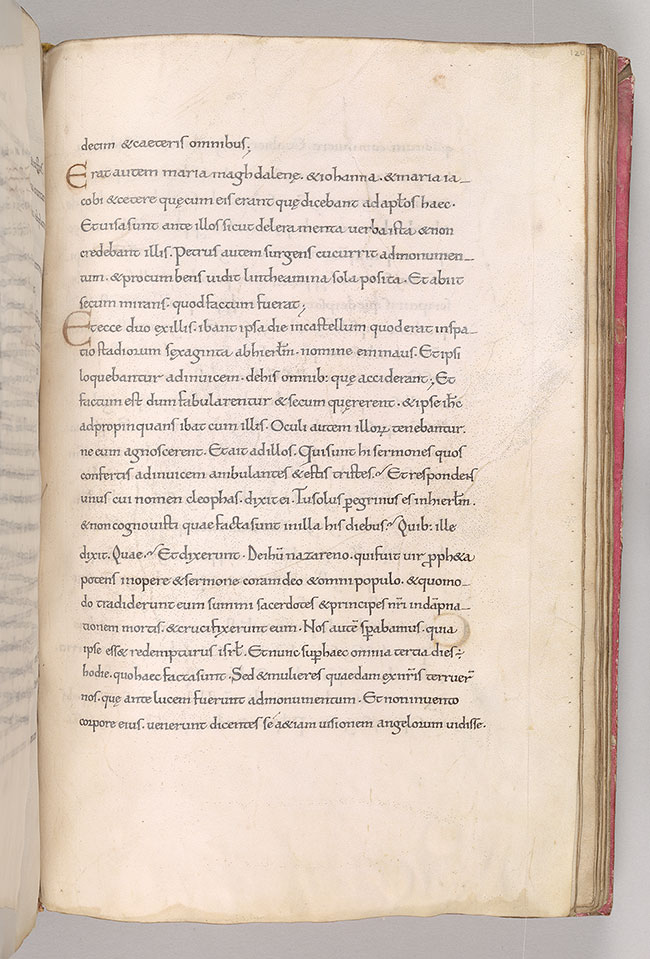 120
decim &caeteris omnibus;
Erat autem maria magdalenę. &iohanna. &maria ia_
cobi &cetere quęcum eis erant quę dicebant ad apłos haec.
Etuisa sunt ante illos sicut delera menta verba ista &non
credebant illis. Petrus autem surgens cucurrit admonumen_
tum. &procumbens uidit lintheamina sola posita. Et abiit
secum mirans. quod factum fuerat;
Et ecce duo exillis. ibant ipsa die incastellum quod erat inspa_
tio stadiorum sexaginta abhierłm. nomine emmaus. Et ipsi
loquebantur adinuicem. dehis omnib: quę acciderant; Et
factum est dum fabularentur &secum quęrerent. &ipse ihc̄
adpropinquans ibat cum illis. Oculi autem illoꝝ tenebantur.
ne eum agnoscerent. Et ait adillos. Qui sunt hi sermones quos
confertis adinuicem ambulantes &estis tristes. Et respondens
unus cui nomen cleophas. dixit ei. Tu solus ꝑegrinus es inhierłm.
&non cognouisti quae facta sunt inilla his diebus. Quib: ille
dixit. Quae. Et dixerunt. De ihū nazareno. qui fuit uir ꝓph&a
potens inopere &sermone coram deo &omni populo. &quomo_
do tradiderunt eum summi sacerdotes &principes nr̄i indāpna_
tionem mortis. &crucifixerunt eum. Nos autē sꝑabamus. quia
ipse ess& redempturus isrł. Et nunc suꝑ haec omnia tertia dies ÷
hodie. quo haec facta sunt. Sed &mulieres quaedam ex nr̄is terruer̄
nos. quę ante lucem fuerunt admonumentum. Et non inuento
corpore eius. uenerunt dicentes sé &iam uisionem angelorum uidisse.